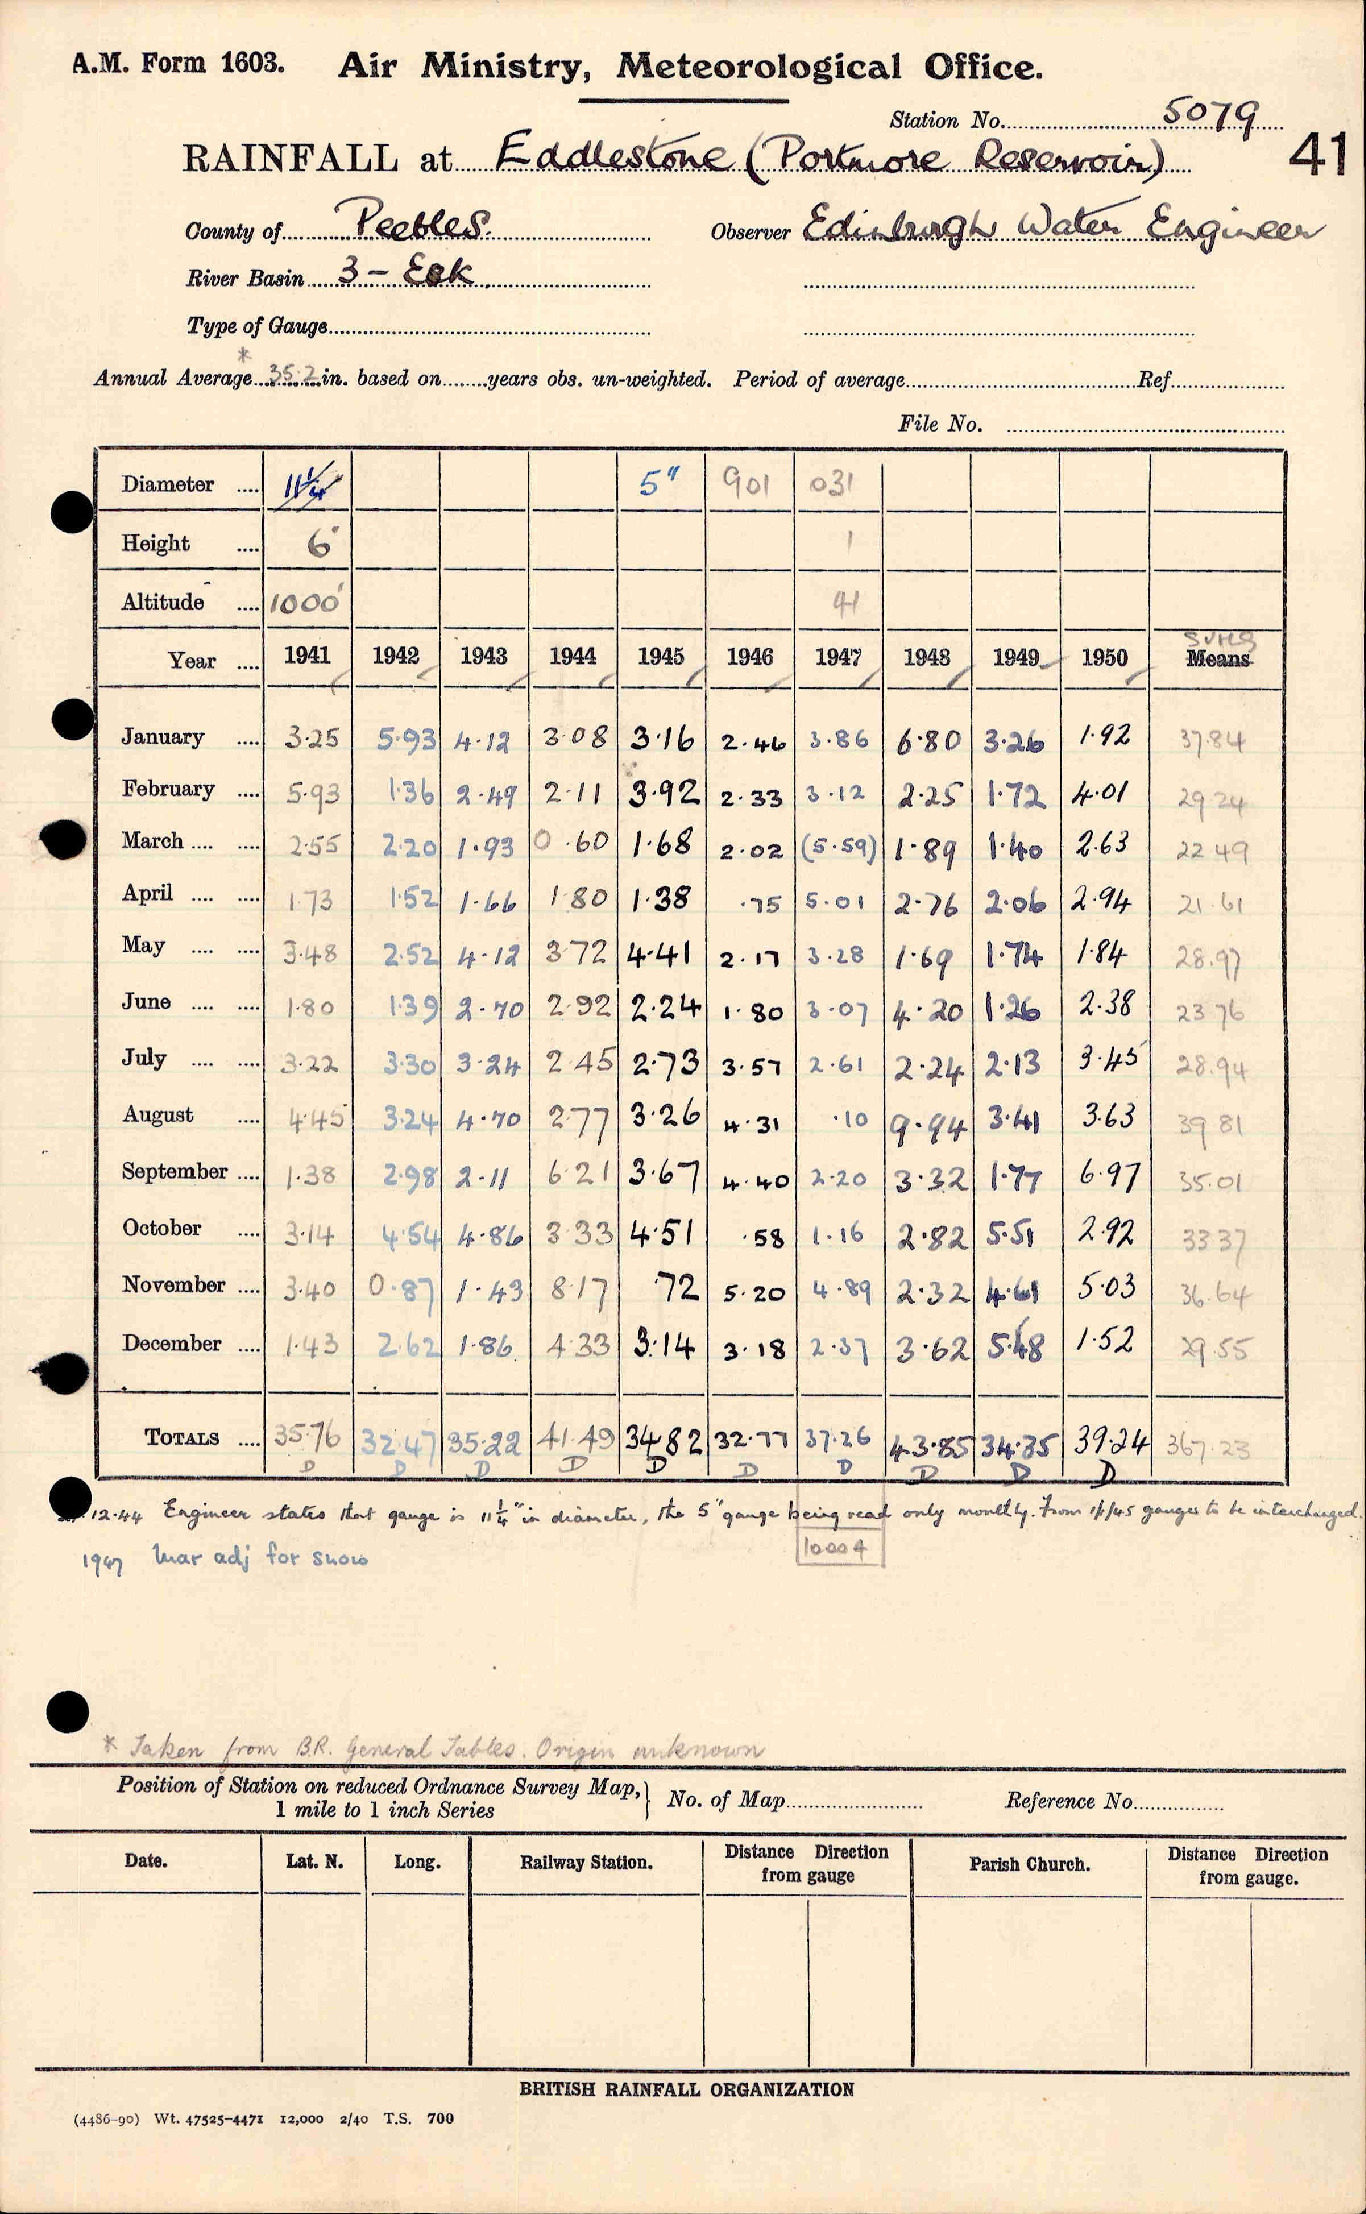 A.M. Form 1603. Air Ministry, Meteorological Office.
Station No. 5079
RAINFALL at Eddlestone (Portmore Reservoir) 41
County of Peebles. Observer Edinburgh Water Engineer
River Basin 3 - Esk
Type of Gauge
*
Annual Average 35.2 in. based on years obs. un-weighted. Period of average Ref.
File No.
Diameter 11 1/4 5" 901 031
Height 6" 1
Altitude 1000' 41
Sums
Year 1941 1942 1943 1944 1945 1946 1947 1948 1949 1950 Means
January 3.25 5.93 4.12 3.08 3.16 2.46 3.86 6.80 3.26 1.92 37.84
February 5.93 1.36 2.49 2.11 3.92 2.33 3.12 2.25 1.72 4.01 29.24
March 2.55 2.20 1.93 0.60 1.68 2.02 (5.59) 1.89 1.40 2.63 22 49
April 1.73 1.52 1.66 1.80 1.38 .75 5.01 2.76 2.06 2.94 21.61
May 3.48 2.52 4.12 3.72 4.41 2.17 3.28 1.69 1.74 1.84 28.97
June 1.80 1.39 2.70 2.92 2.24 1.80 3.07 4.20 1.26 2.38 23.76
July 3.22 3.30 3.24 2.45 2.73 3.57 2.61 2.24 2.13 3.45 28.94
August 4.45 3.24 4.70 2.77 3.26 4.31 .10 9.94 3.41 3.63 39 81
September 1.38 2.98 2.11 6.21 3.67 4.40 2.20 3.32 1.77 6.97 35.01
October 3.14 4.54 4.86 3.33 4.51 .58 1.16 2.82 5.51 2.92 33 37
November 3.40 0.87 1.43 8.17 .72 5.20 4.89 2.32 4.61 5.03 36.64
December 1.43 2.62 1.86 4.33 3.14 3.18 2.37 3.62 5.48 1.52 29.55
TOTALS 35.76 32.47 35.22 41.49 34.82 32.77 37.26 43.85 34.35 39.24 367.23
D D D D D D D D D D
12.44 Engineer states that gauge is 11 1/4" in diameter, the 5" gauge being read only monthly. From 1/1/45 gauges to be interchanged.
10004
1947 Mar adj for snow
* Taken from B.R. General Tables. Origin unknown
Position of Station on reduced Ordnance Survey Map, 1 mile to 1 inch Series No. of Map Reference No.
Date. Lat. N. Long. Railway Station. Distance Direction from gauge Parish Church. Distance Direction from gauge.
BRITISH RAINFALL ORGANIZATION
(4486-90) Wt. 47525-4471 12,000 2/40 T.S. 700